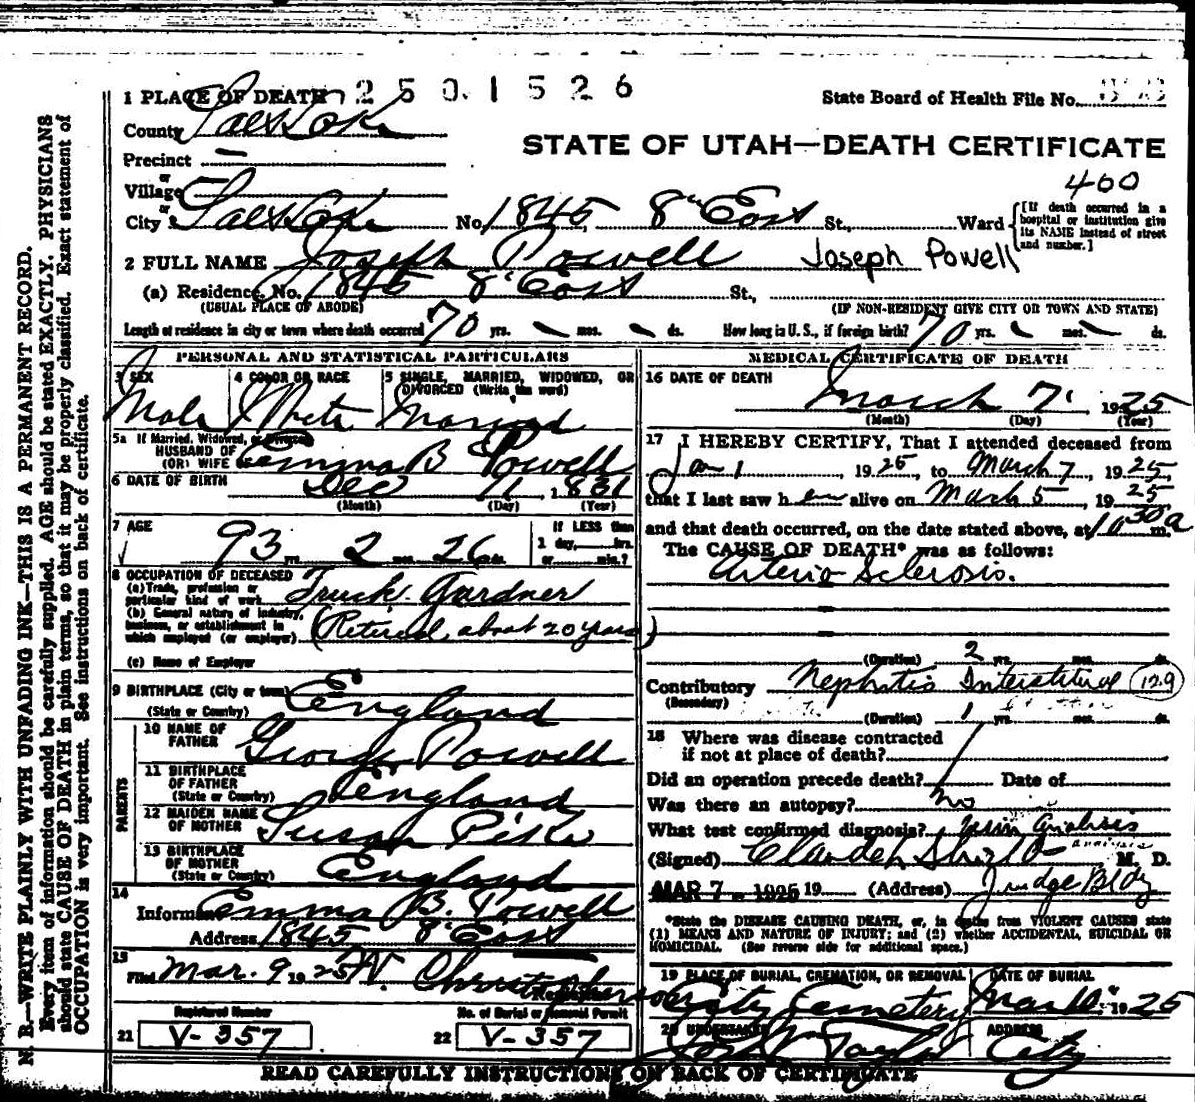 2501526
1 PLACE OF DEATH
State Board of Health File No.
County Salt Lake
STATE OF UTAH—DEATH CERTIFICATE
Precinct —
or
Village —
400
or
City Salt Lake No. 1845, 8" East St., Ward [If death occurred in a hospital or institution give its NAME instead of street and number.]
2 FULL NAME Joseph Powell Joseph Powell
(a) Residence, No. 1845 8" East St.,
(USUAL PLACE OF ABODE) (IF NON-RESIDENT GIVE CITY OR TOWN AND STATE)
Length of residence in city or town where death occurred 70 yrs. — mos. — ds. How long in U. S., if foreign birth? 70 yrs. — mos. — ds.
PERSONAL AND STATISTICAL PARTICULARS
3 SEX 4 COLOR OR RACE 5 SINGLE, MARRIED, WIDOWED, OR
DIVORCED (Write the word)
Male White Married
5a If Married, Widowed, or Divorced
HUSBAND OF
(OR) WIFE OF Emma B Powell
6 DATE OF BIRTH Dec 11 1831
(Month) (Day) (Year)
7 AGE If LESS than
1 day, hrs.
93 yrs. 2 mos. 26 ds. or min.?
8 OCCUPATION OF DECEASED
(a) Trade, profession or
particular kind of work Truck Gardner
(b) General nature of industry,
business, or establishment in
which employed (or employer) (Retired, about 20 years)
(c) Name of Employer
9 BIRTHPLACE (City or town)
(State or Country) England
PARENTS
10 NAME OF
FATHER George Powell
11 BIRTHPLACE
OF FATHER
(State or Country) England
12 MAIDEN NAME
OF MOTHER Susan Pike
13 BIRTHPLACE
OF MOTHER
(State or Country) England
14
Informant Emma B. Powell
Address 1845 8" East
15
Filed Mar. 9 1925 Christopherson
Registrar
Registered Number No. of Burial or Removal Permit
21 V-357 22 V-357
MEDICAL CERTIFICATE OF DEATH
16 DATE OF DEATH
March 7, 1925
(Month) (Day) (Year)
17 I HEREBY CERTIFY, That I attended deceased from
Jan 1 1925, to March 7, 1925,
that I last saw h alive on March 5, 1925
and that death occurred, on the date stated above, at 10 30 a m.
The CAUSE OF DEATH* was as follows:
Arterio Sclerosis.
(Duration) 2 yrs. mos. ds.
Contributory Nephritis Interstitial 129
(Secondary)
(Duration) 1 yrs. mos. ds.
18 Where was disease contracted
if not at place of death?
Did an operation precede death? Date of
Was there an autopsy? no
What test confirmed diagnosis? Urin analysis
analysis
(Signed) Shields M. D.
MAR 7 - 1925 19 (Address) Judge Bldg
*State the DISEASE CAUSING DEATH, or, in deaths from VIOLENT CAUSES state
(1) MEANS AND NATURE OF INJURY; and (2) whether ACCIDENTAL, SUICIDAL OR
HOMICIDAL. (See reverse side for additional space.)
19 PLACE OF BURIAL, CREMATION, OR REMOVAL DATE OF BURIAL
City Cemetery Mar 10" 1925
20 UNDERTAKER ADDRESS
Taylor City
READ CAREFULLY INSTRUCTIONS ON BACK OF CERTIFICATE
N. B.—WRITE PLAINLY WITH UNFADING INK—THIS IS A PERMANENT RECORD.
Every item of information should be carefully supplied. AGE should be stated EXACTLY. PHYSICIANS
should state CAUSE OF DEATH in plain terms, so that it may be properly classified. Exact statement of
OCCUPATION is very important. See instructions on back of certificate.